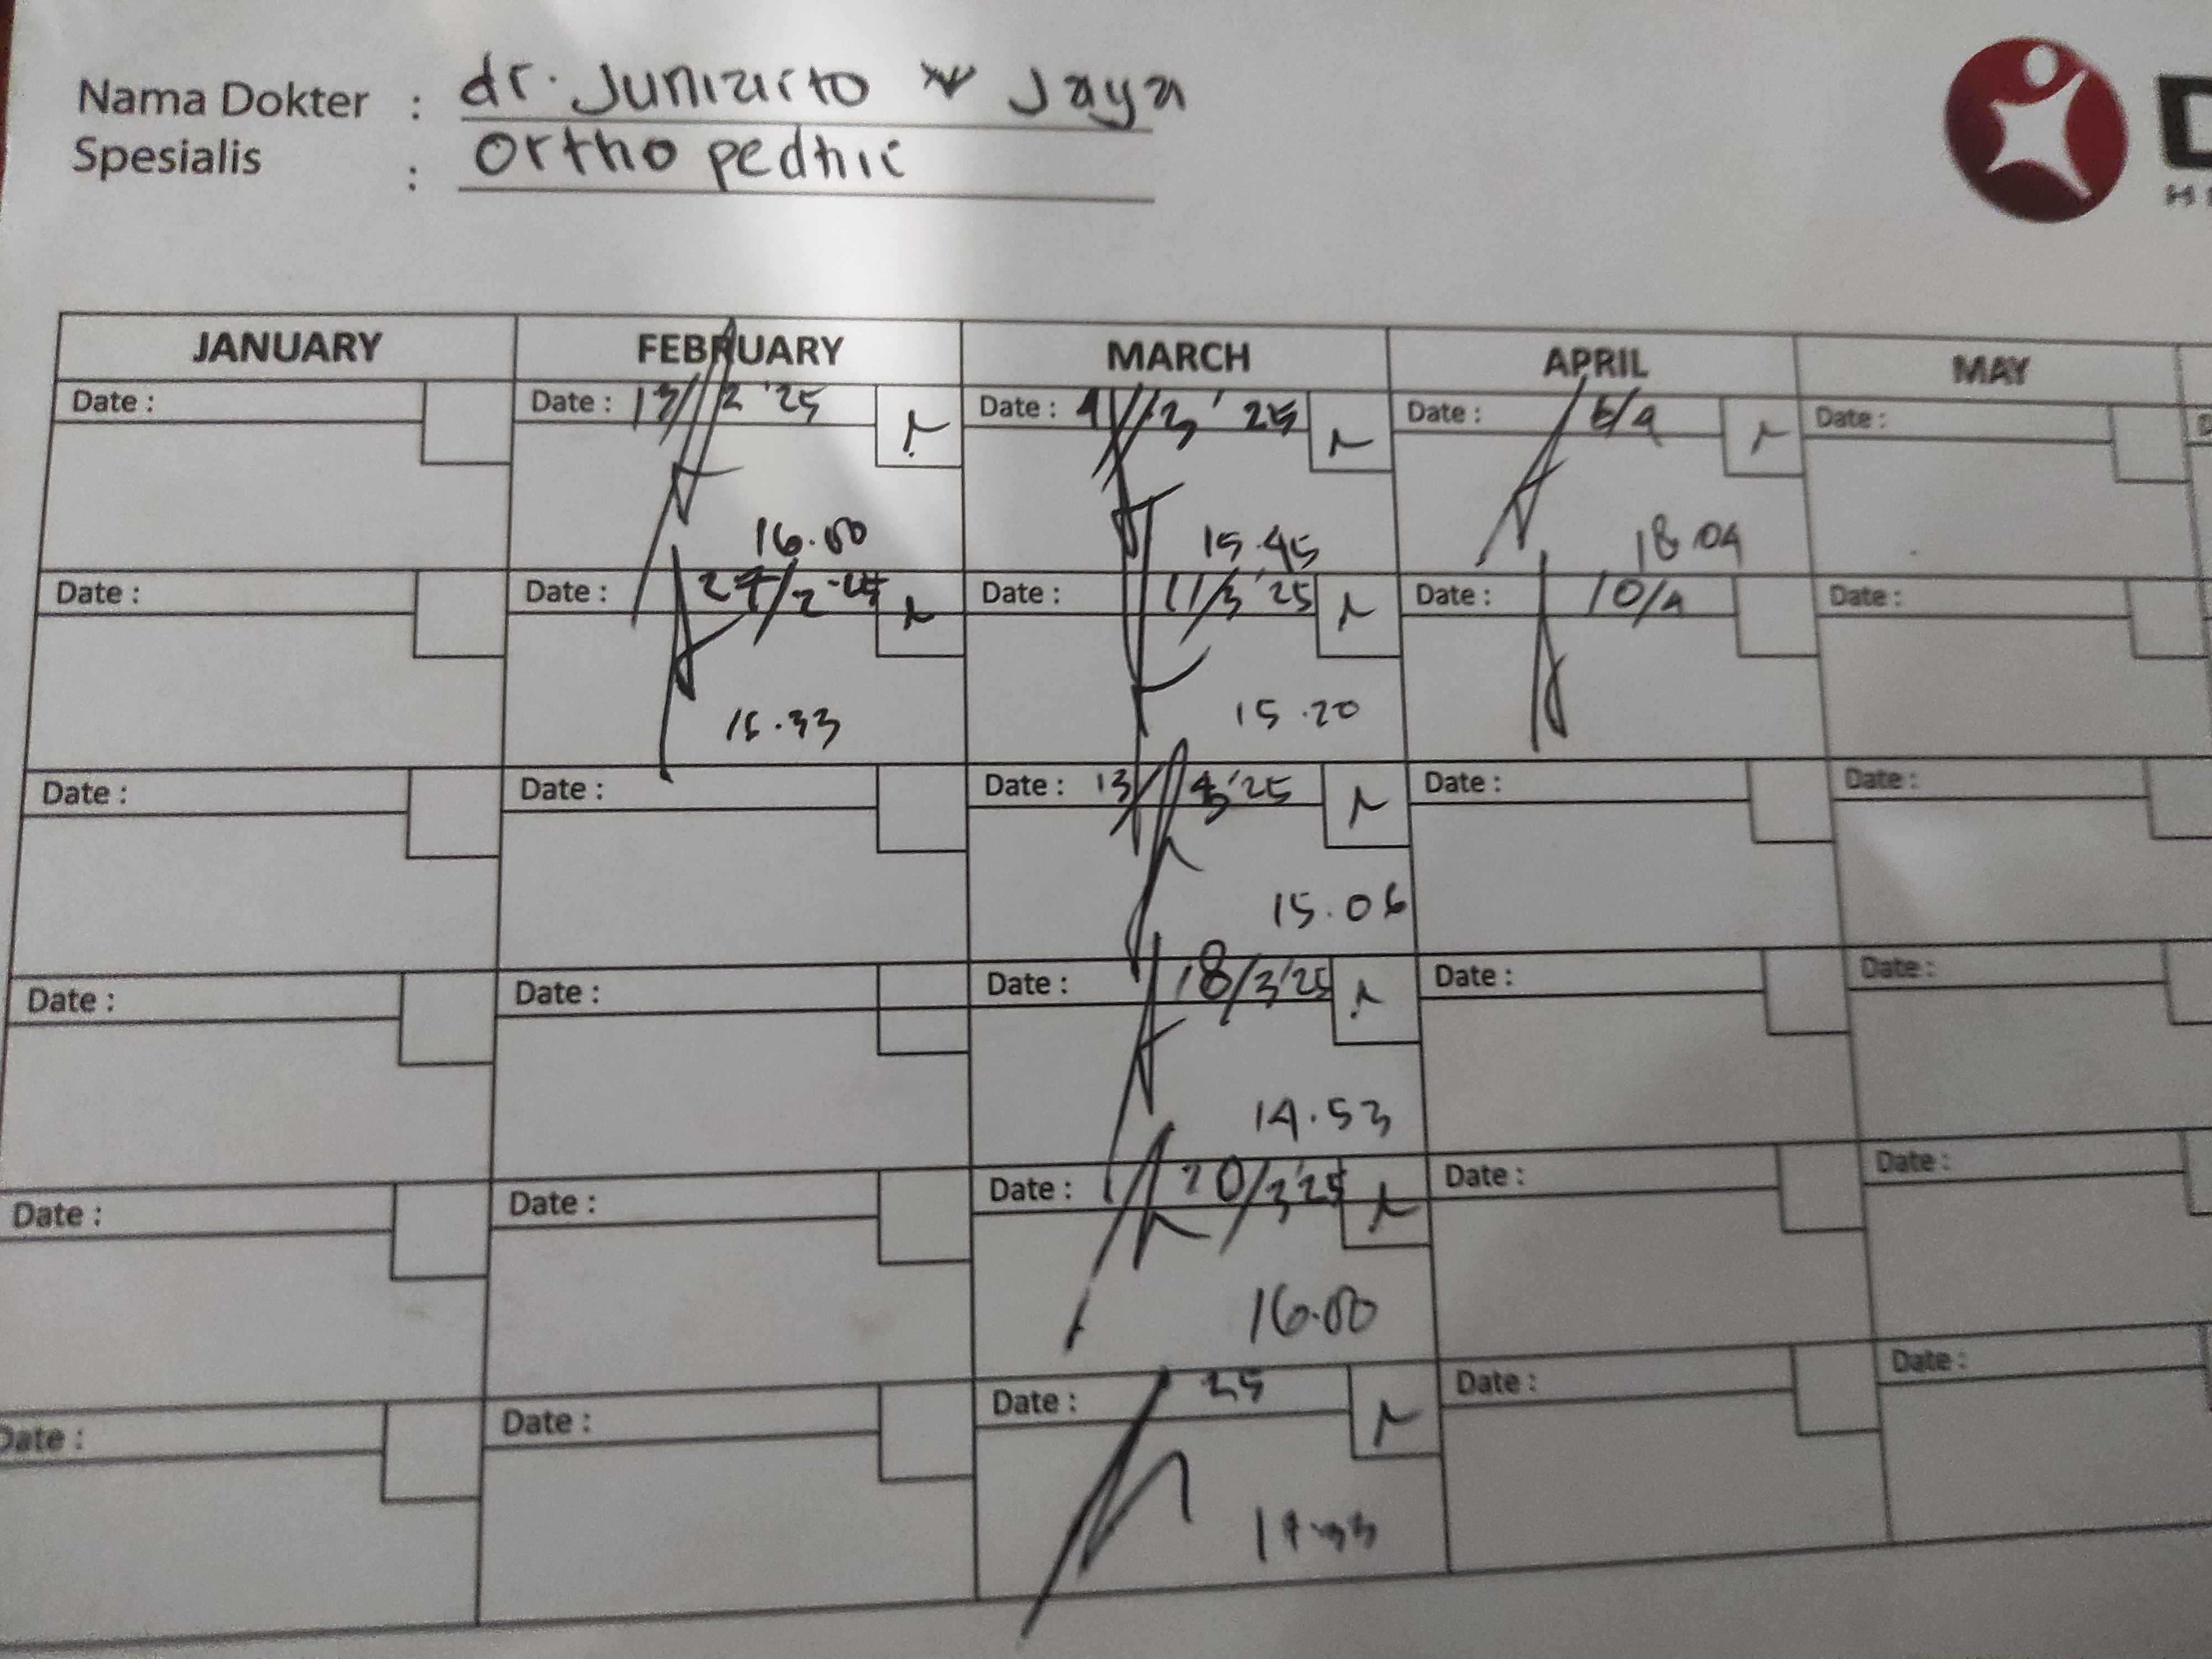 Nama Dokter : dr. Junizarto Jaya
Spesialis : Orthopedhic
D
JANUARY FEBRUARY MARCH APRIL MAY
Date : Date : 13/2 '25 Date : /3 '25 Date : /4 Date :
16.00 15.45 18.04
Date : Date : 27/2 '25 Date : 11/3 '25 Date : 10/4 Date :
15.33 15.20
Date : Date : Date : 13/3 '25 Date : Date :
15.06
Date : Date : Date : 18/3 '25 Date : Date :
14.53
Date : Date : Date : 20/3 '25 Date : Date :
16.00
Date : Date : Date : 25 Date : Date :